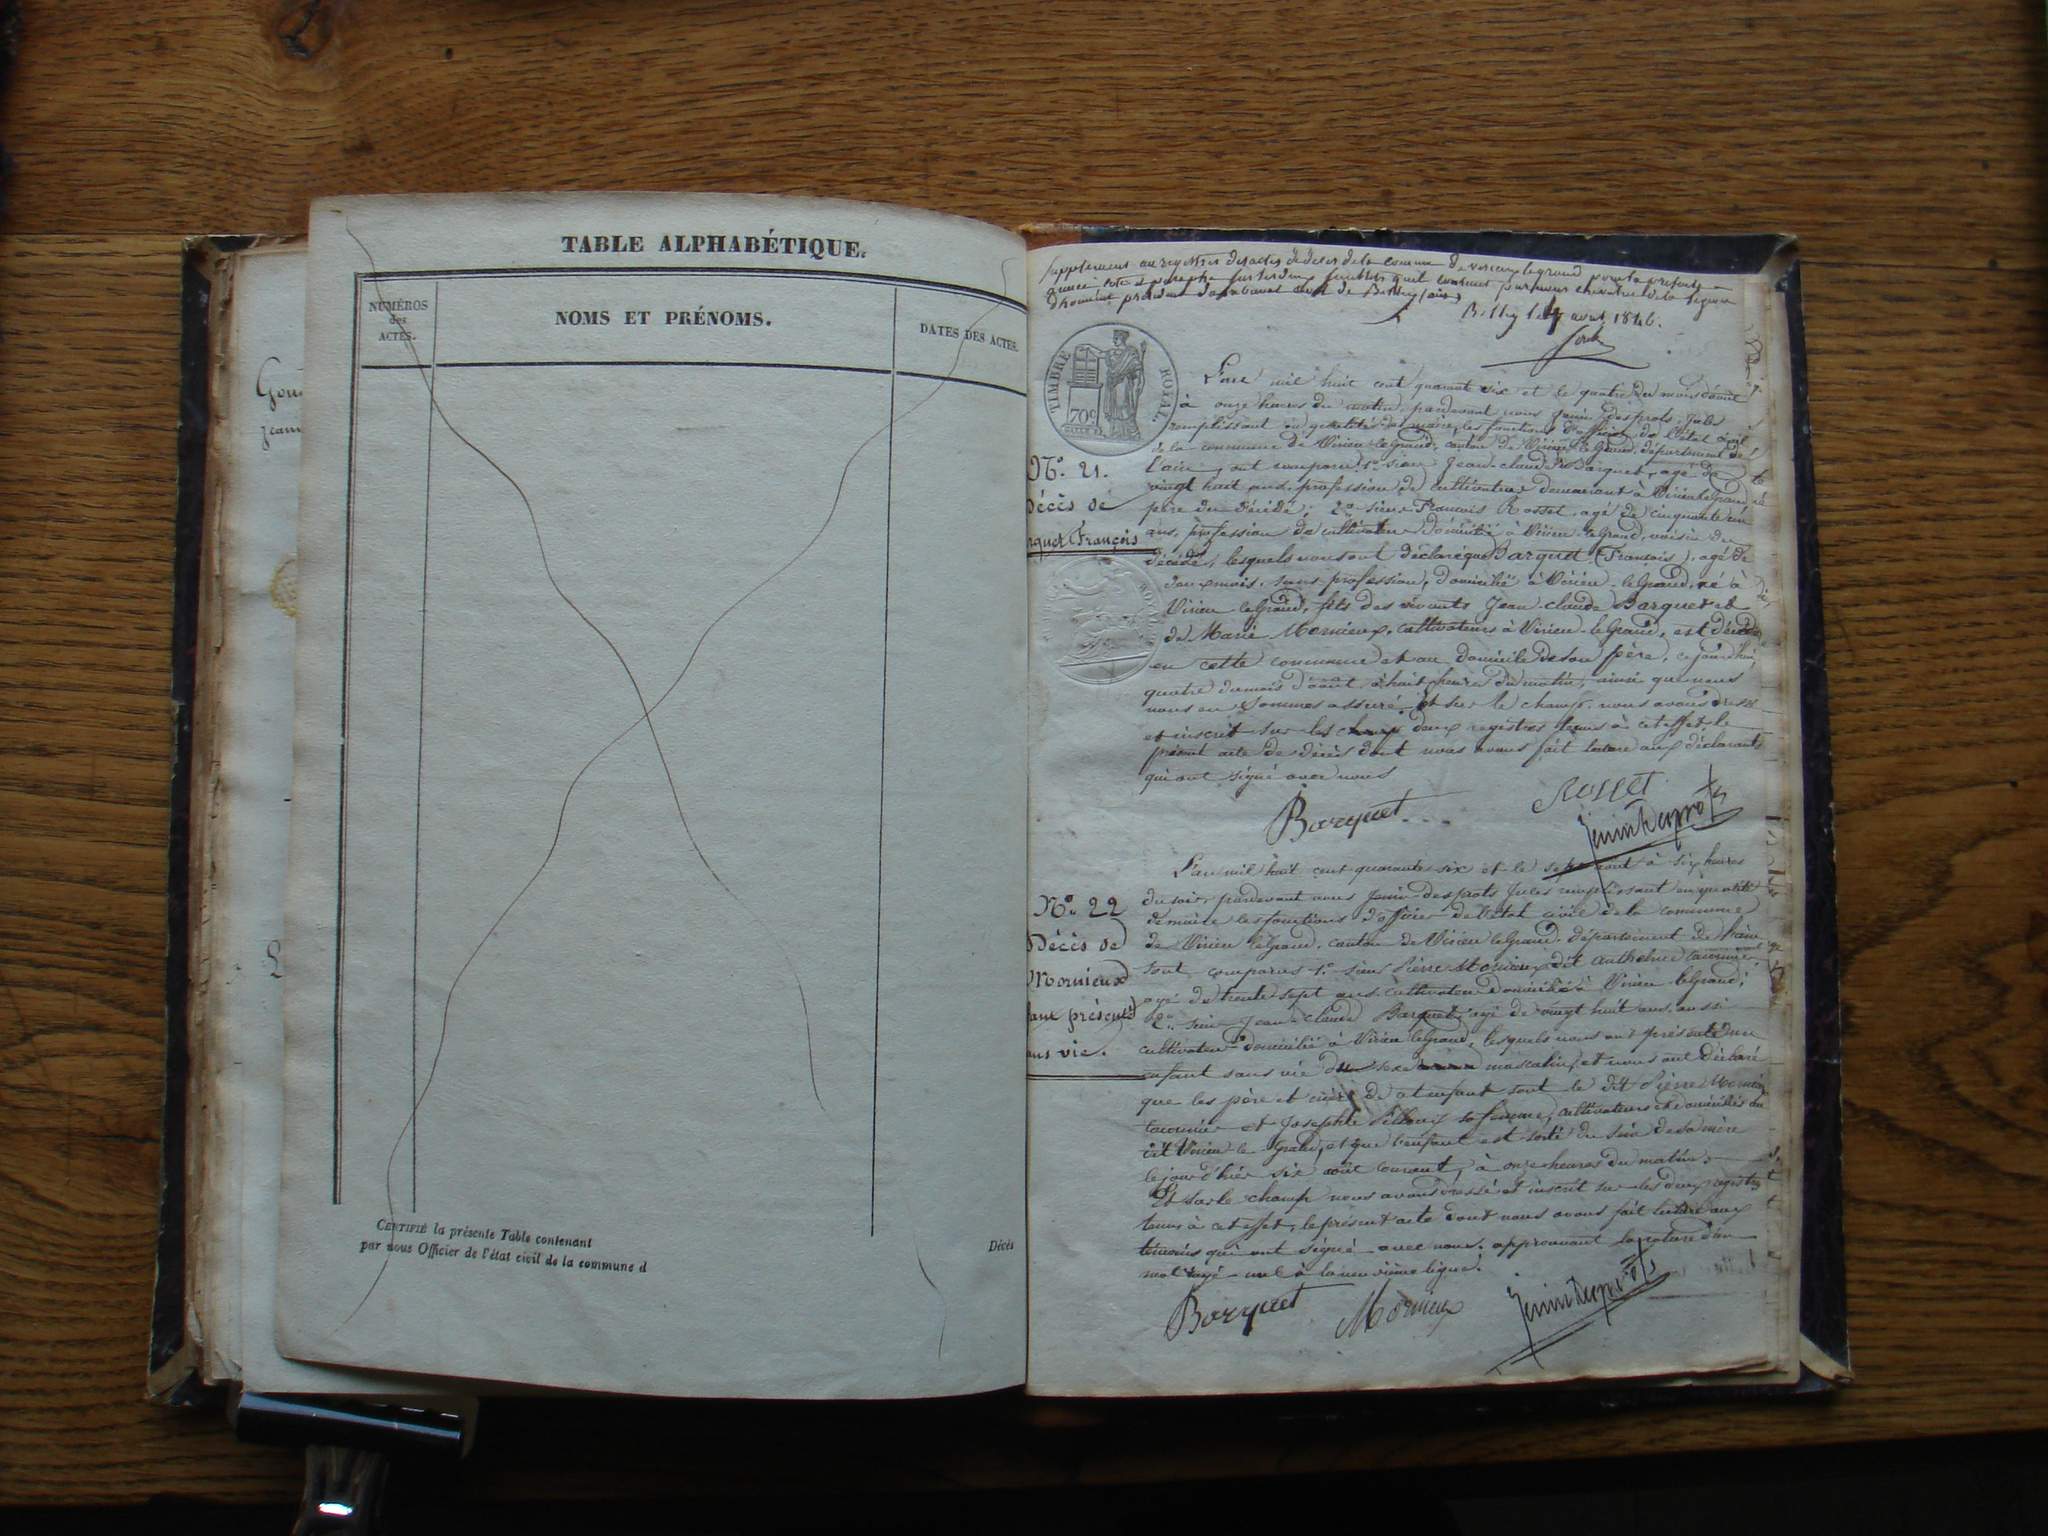 Gou
jean
L
TABLE ALPHABÉTIQUE.
NUMÉROS
des
ACTES.
NOMS ET PRÉNOMS.
DATES DES ACTES.
CERTIFIÉ la présente Table contenant
par nous Officier de l'état civil de la commune d
Décès
Supplément au registre des actes de décès de la commune de virieu legrand pour la présente
année coté et paraphé par chevalier de la légion
d'honneur président du tribunal civil de Belley (ain)
Belley le 4 aout 1846.
TIMBRE ROYAL.
70c
L'an mil huit cent quarant six et le quatre du mois d'août
à onze heures du matin, pardevant nous Jenin desprots, Jules
remplissant en qualité de maire, les fonctions d'officier de l'état civil
de la commune de Virieu-le-Grand, canton de Virieu-le-Grand, département de
l'ain, ont comparu 1º sieur Jean-claude Barquet, agé de
vingt huit ans, profession de cultivateur demeurant à Virieu le Grand
père du décédé; 2º sieur François Rosset, agé de cinquante un
ans, profession de cultivateur domicilié à Virieu-le-Grand, voisin du
décédé, lesquels nous ont déclaré que Barquet (François), agé de
deux mois, sans profession, domicilié à Virieu-le-Grand, né à
Virieu le Grand, fils des vivants Jean-claude Barquet et
de Marie Mornieux, cultivateurs à Virieu-le-Grand, est décédé
en cette commune et au domicile de son père, ce jourd'hui
quatre du mois d'août, à huit heures du matin, ainsi que nous
nous en sommes assuré. Et sur le champ, nous avons dressé
et inscrit sur les deux registres tenus à cet effet, le
présent acte de décès dont nous avons fait lecture aux déclarants
qui ont signé avec nous
Nº. 21.
Décès de
rquet François
Barquet
Rosset
Jenin Desprots
L'an mil huit cent quarante six et le sept août à six heures
du soir, pardevant nous Jenin desprots Jules remplissant en qualité
de maire les fonctions d'officier de l'état civil de la commune
de Virieu le Grand, canton de Virieu le Grand, département de l'ain
sont comparus 1º sieur Pierre Mornieux dit anthelme
agé de trente sept ans cultivateur domicilié à Virieu le Grand;
2º sieur Jean-Claude Barquet agé de vingt huit ans, aussi
cultivateur domicilié à Virieu le Grand, lesquels nous ont présenté un
enfant sans vie du sexe masculin, et nous ont déclaré
que les père et mère de cet enfant sont le dit Pierre Mornieux
et Josephte sa femme, cultivateurs et domiciliés au
dit Virieu-le-Grand, et que l'enfant est sorti du sein de sa mère
le jour d'hier six août courant, à onze heures du matin.
Et sur le champ nous avons dressé et inscrit sur les deux registres
tenus à cet effet, le présent acte dont nous avons fait lecture aux
témoins qui ont signé avec nous, approuvant la rature d'un
mot rayé nul à la neuvième ligne.
Nº. 22
Décès de
Mornieux
fant présenté
ans vie.
Barquet
Mornieux
Jenin Desprots